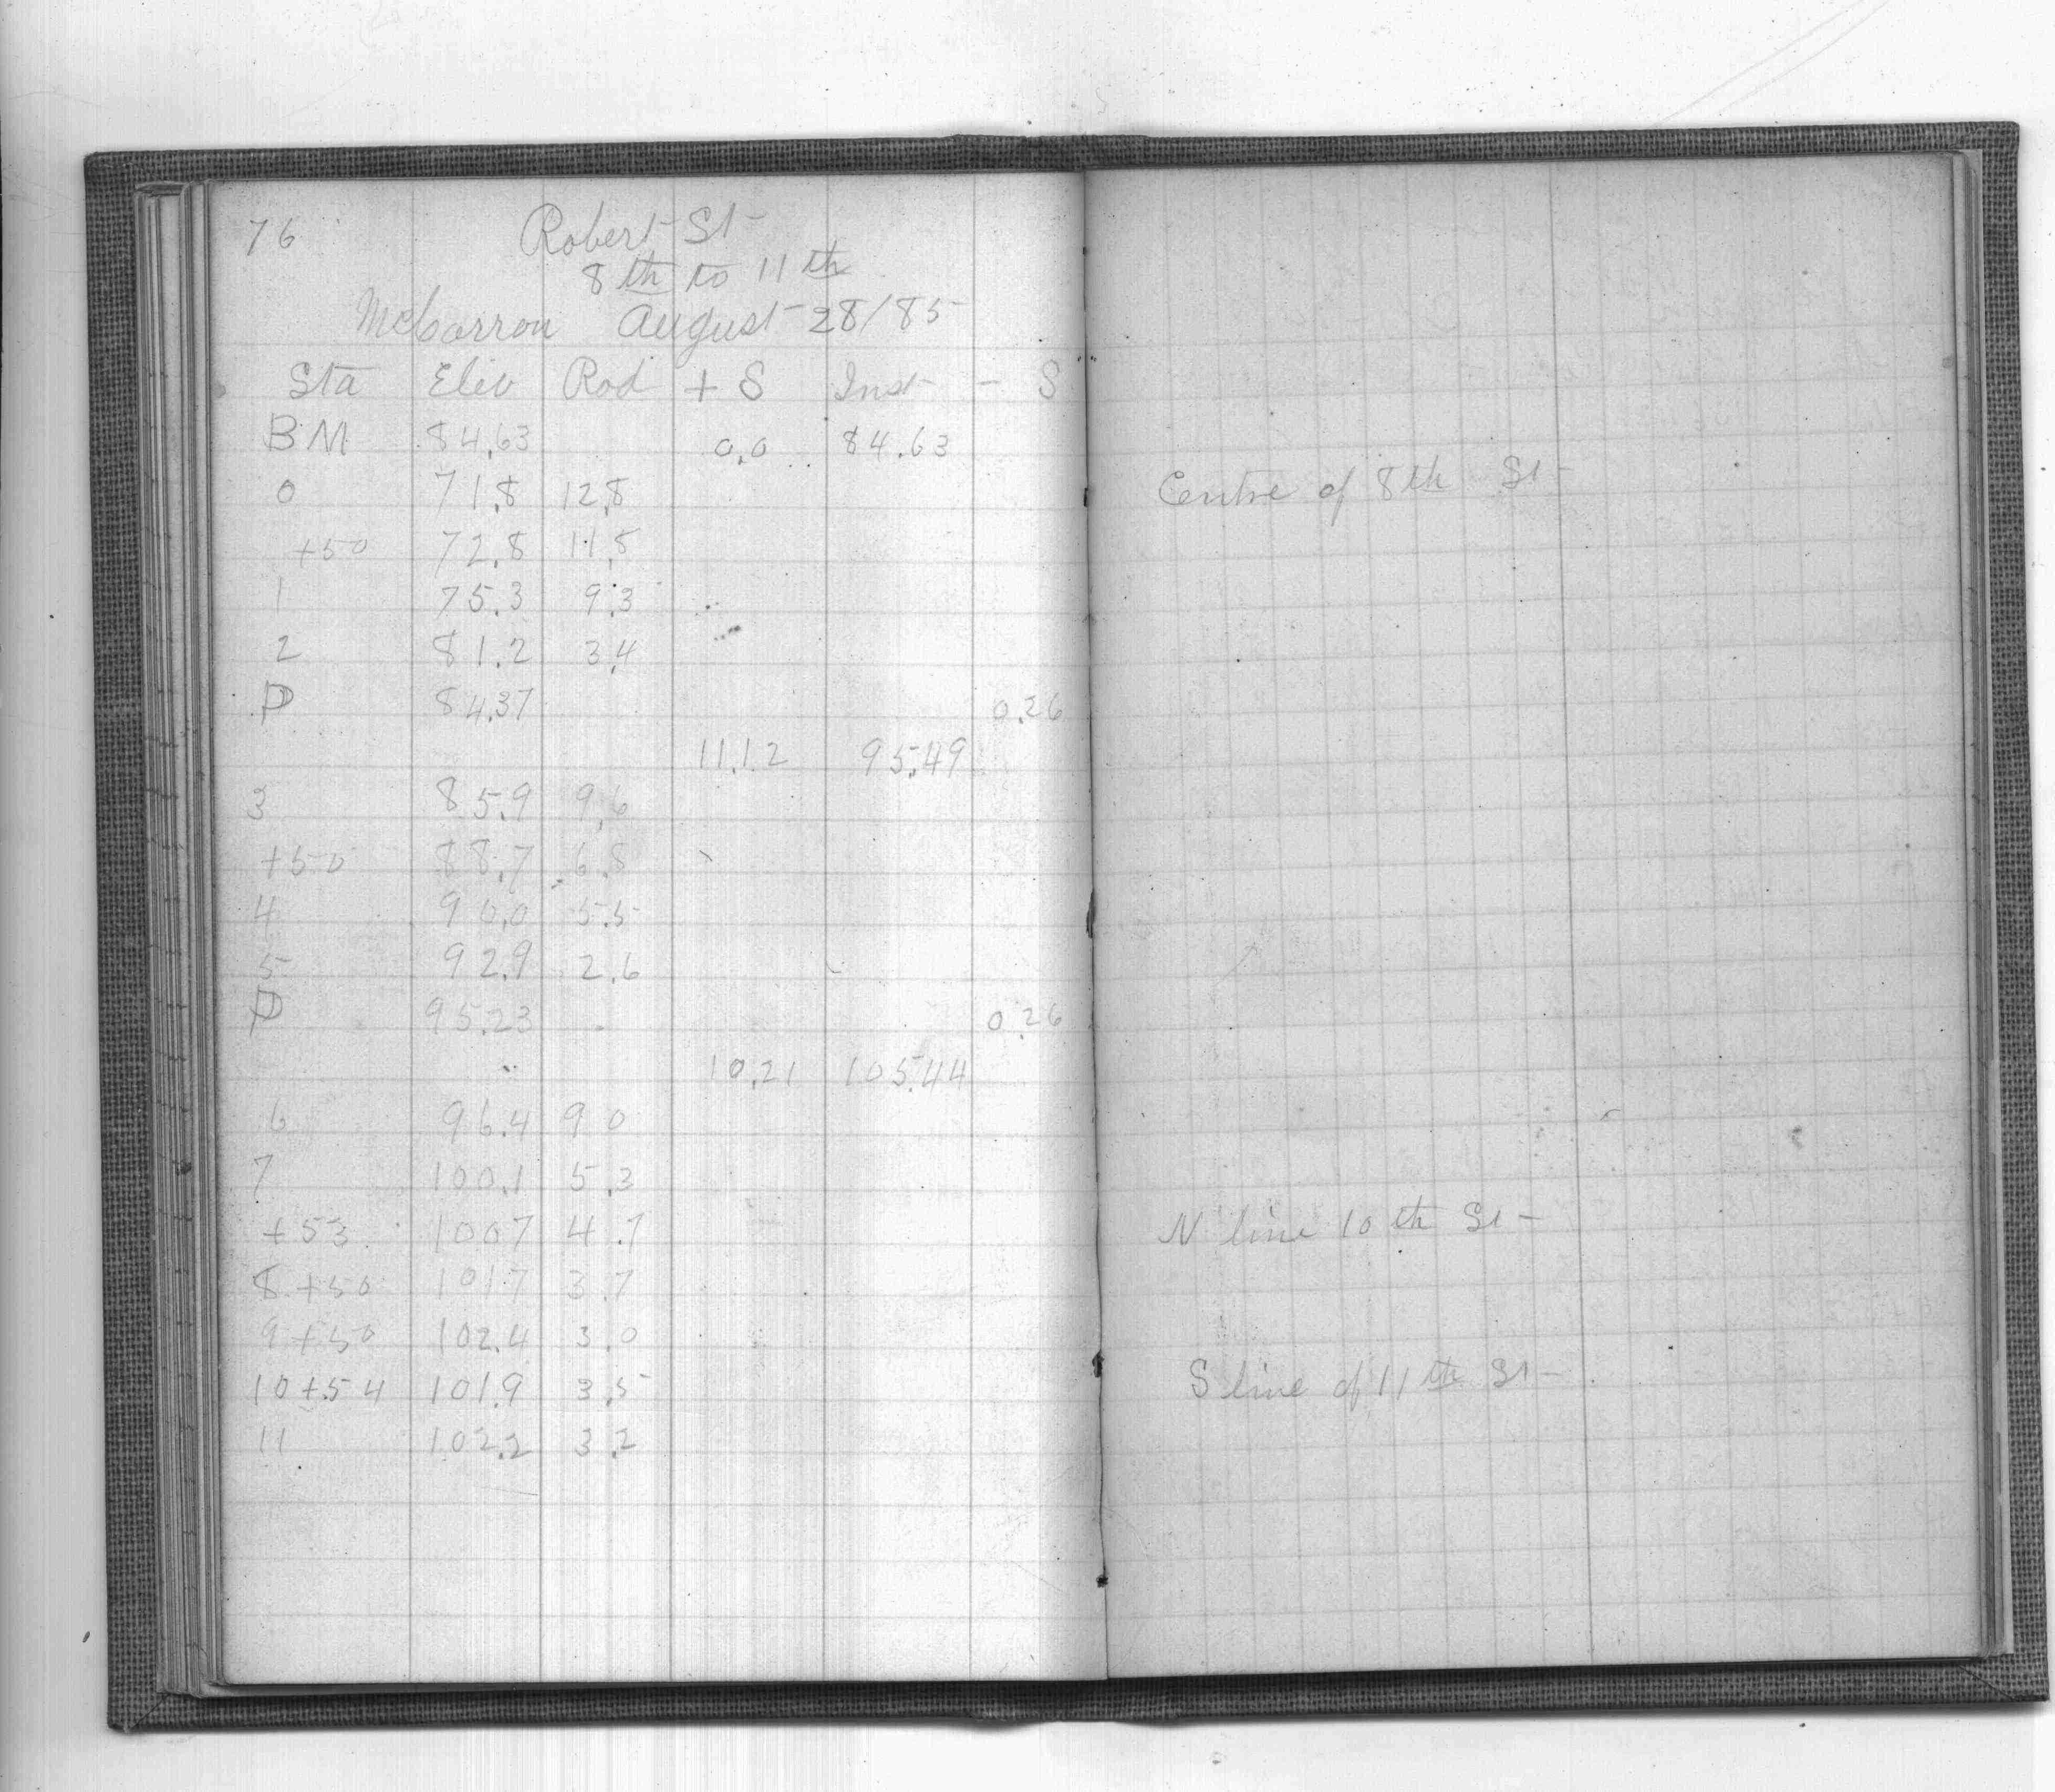 76 Robert St
8th to 11th
McCarron August 28/85
Sta Elev Rod + S Inst - S
BM 84.63 0.0 84.63
0 71.8 12.8 Centre of 8th St
+50 72.8 11.5
1 75.3 9.3
2 81.2 3.4
P 84.37 0.26
11.12 95.49
3 85.9 9.6
+50 88.7 6.8
4 90.0 5.5
5 92.9 2.6
P 95.23 0.26
10.21 105.44
6 96.4 9 0
7 100.1 5.3
+53 100 7 4.7 N line 10th St
8 +50 101.7 3 7
9 +50 102.4 3.0
10 +54 101.9 3.5 S line of 11th St
11 102.2 3.2